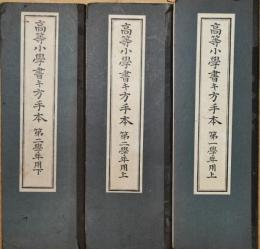 高等小學書キ方手本 第一學年用上
高等小學書キ方手本 第二學年用上
高等小學書キ方手本 第二學年用下